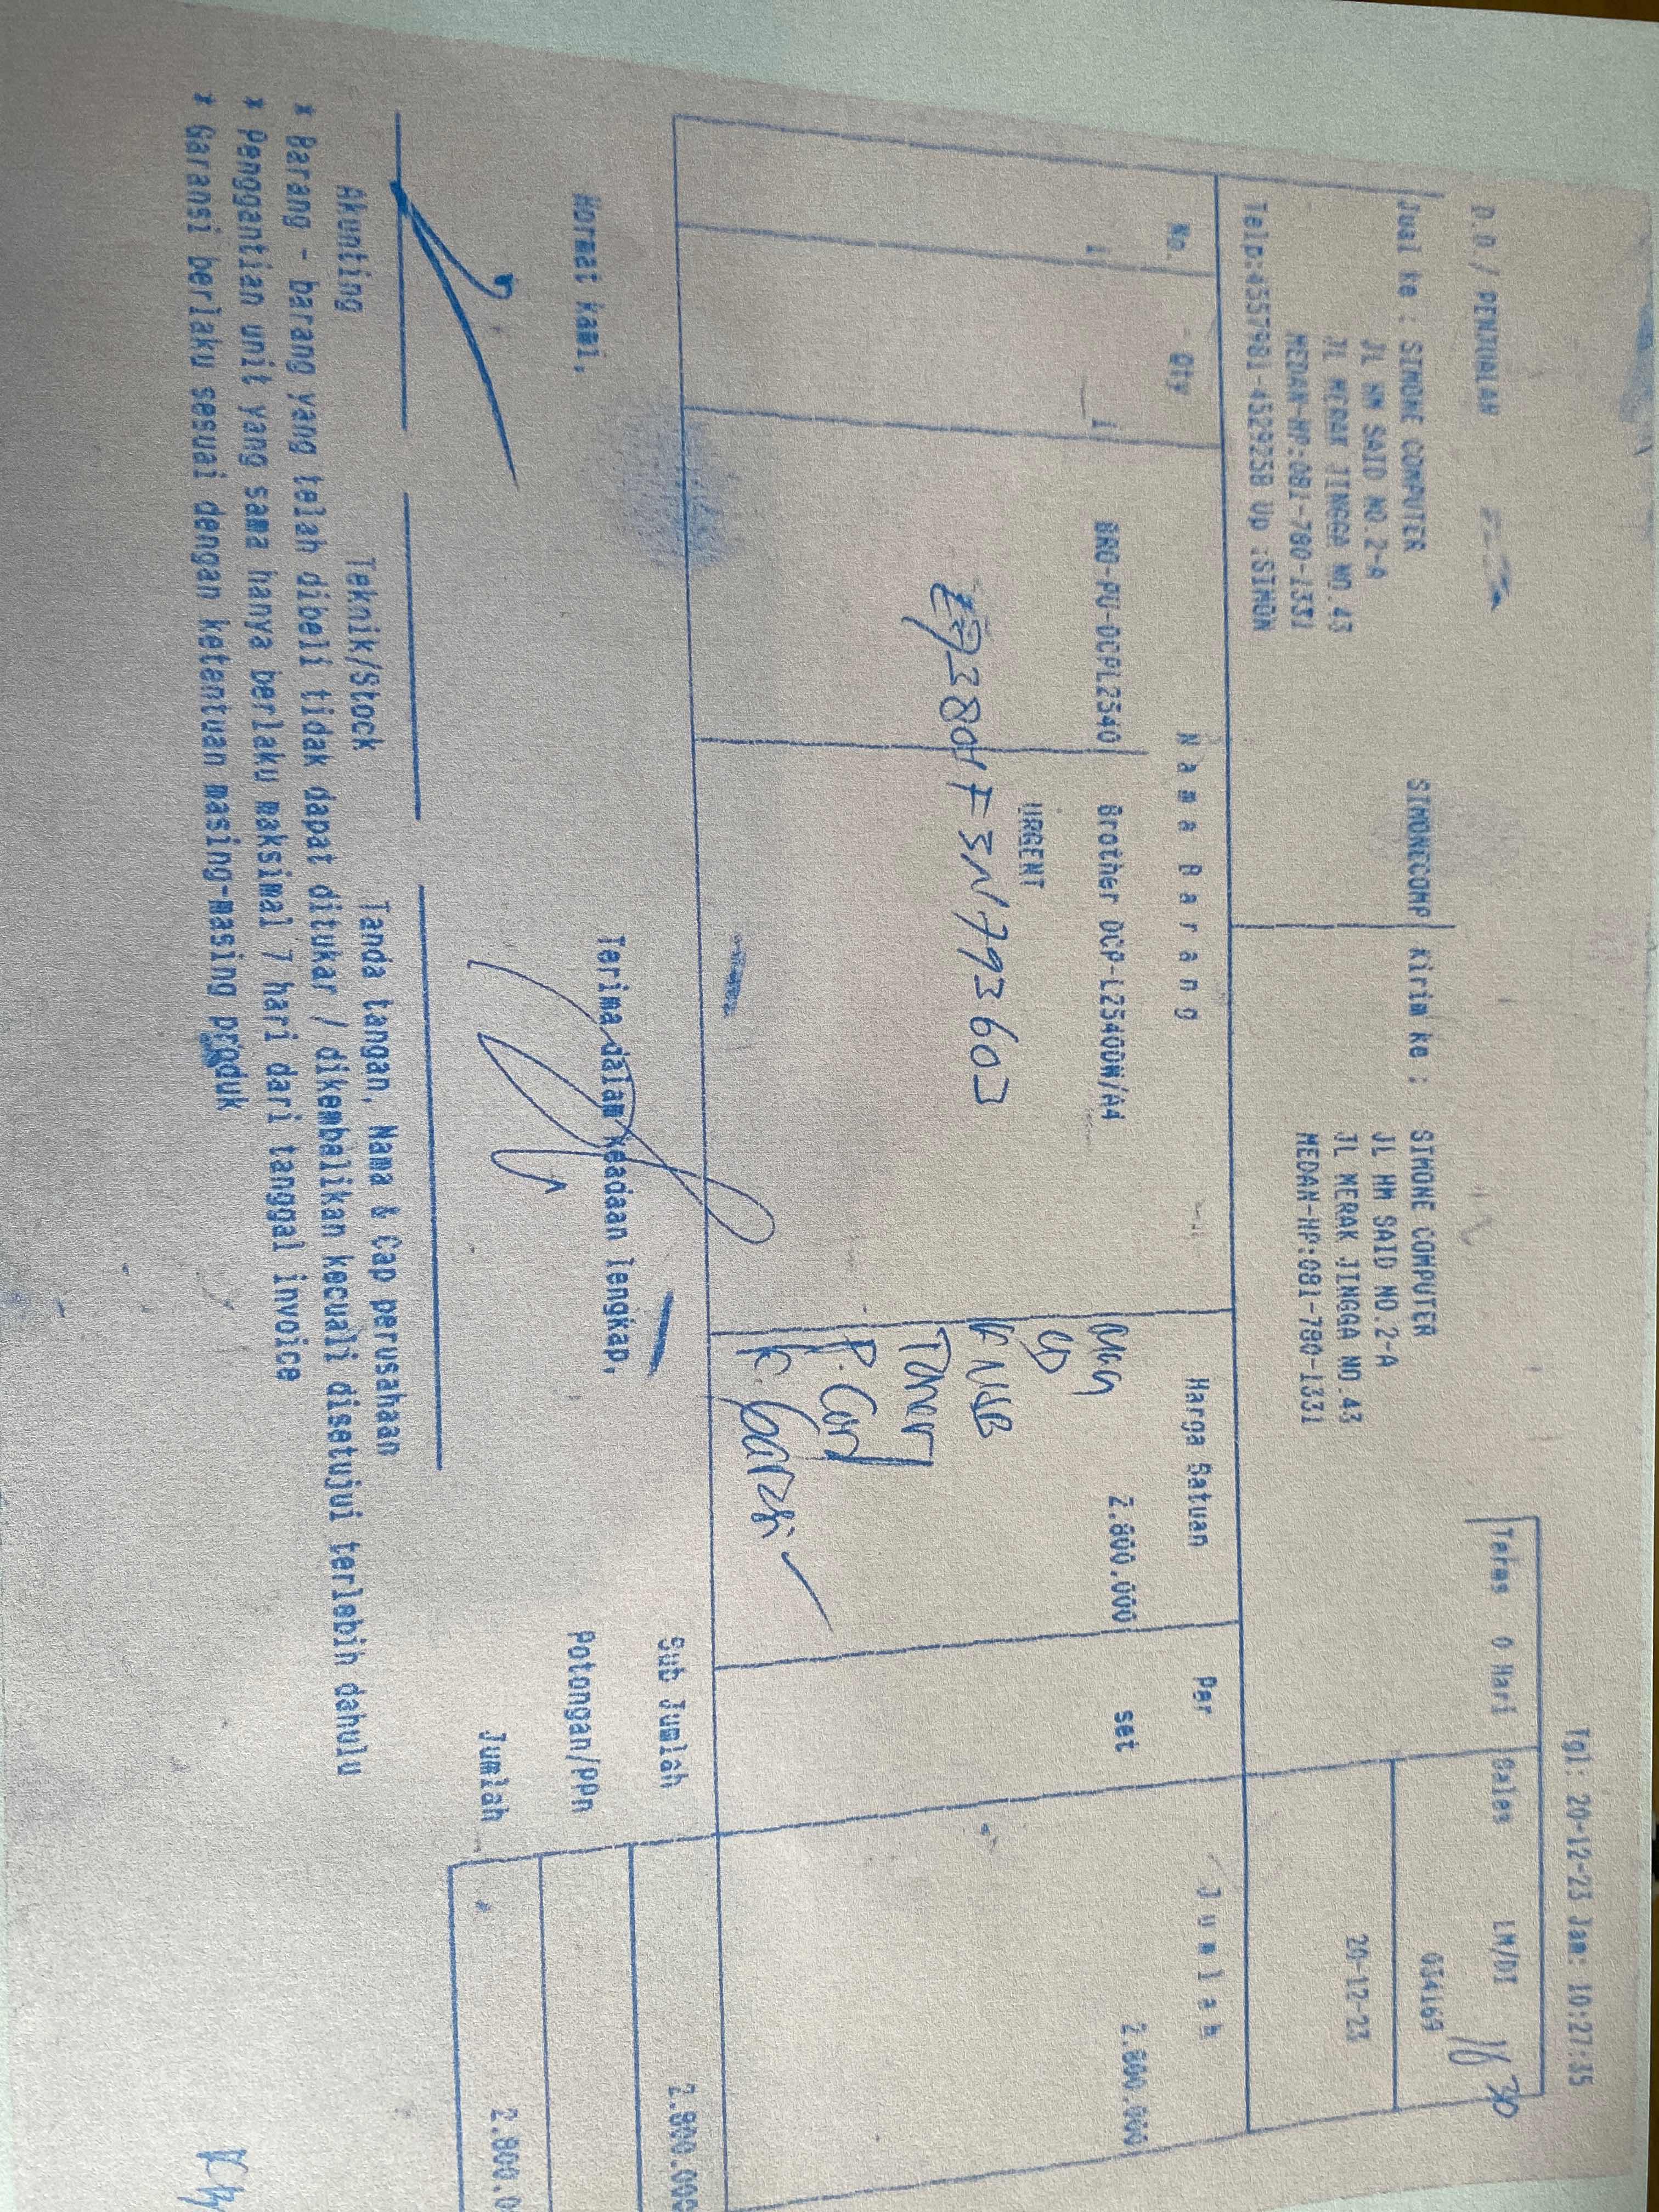 Tgl: 20-12-23 Jam: 10:27:35
D.O./ PENJUALAN
Terms 0 Hari Sales LM/DI
Jual ke : SIMONE COMPUTER SIMONECOMP Kirim ke : SIMONE COMPUTER 054169
JL HM SAID NO.2-A JL HM SAID NO.2-A
JL MERAK JINGGA NO.43 JL MERAK JINGGA NO.43 20-12-23
MEDAN-HP:081-780-1331 MEDAN-HP:081-780-1331
Telp:4557981-4529258 Up :SIMON
No. Qty Nama Barang Harga Satuan Per Jumlah
1 1 BRO-PU-DCPL2540 Brother DCP-L2540DW/A4 2.800.000 set 2.800.000
URGENT
K USB
Toner
P. Cord
K. Garansi
Hormat kami, Terima dalam keadaan lengkap, Sub Jumlah 2.800.000
Potongan/PPn
Jumlah 2.800.0
Akunting Teknik/Stock Tanda tangan, Nama & Cap perusahaan
* Barang - barang yang telah dibeli tidak dapat ditukar / dikembalikan kecuali disetujui terlebih dahulu
* Penggantian unit yang sama hanya berlaku maksimal 7 hari dari tanggal invoice
* Garansi berlaku sesuai dengan ketentuan masing-masing produk